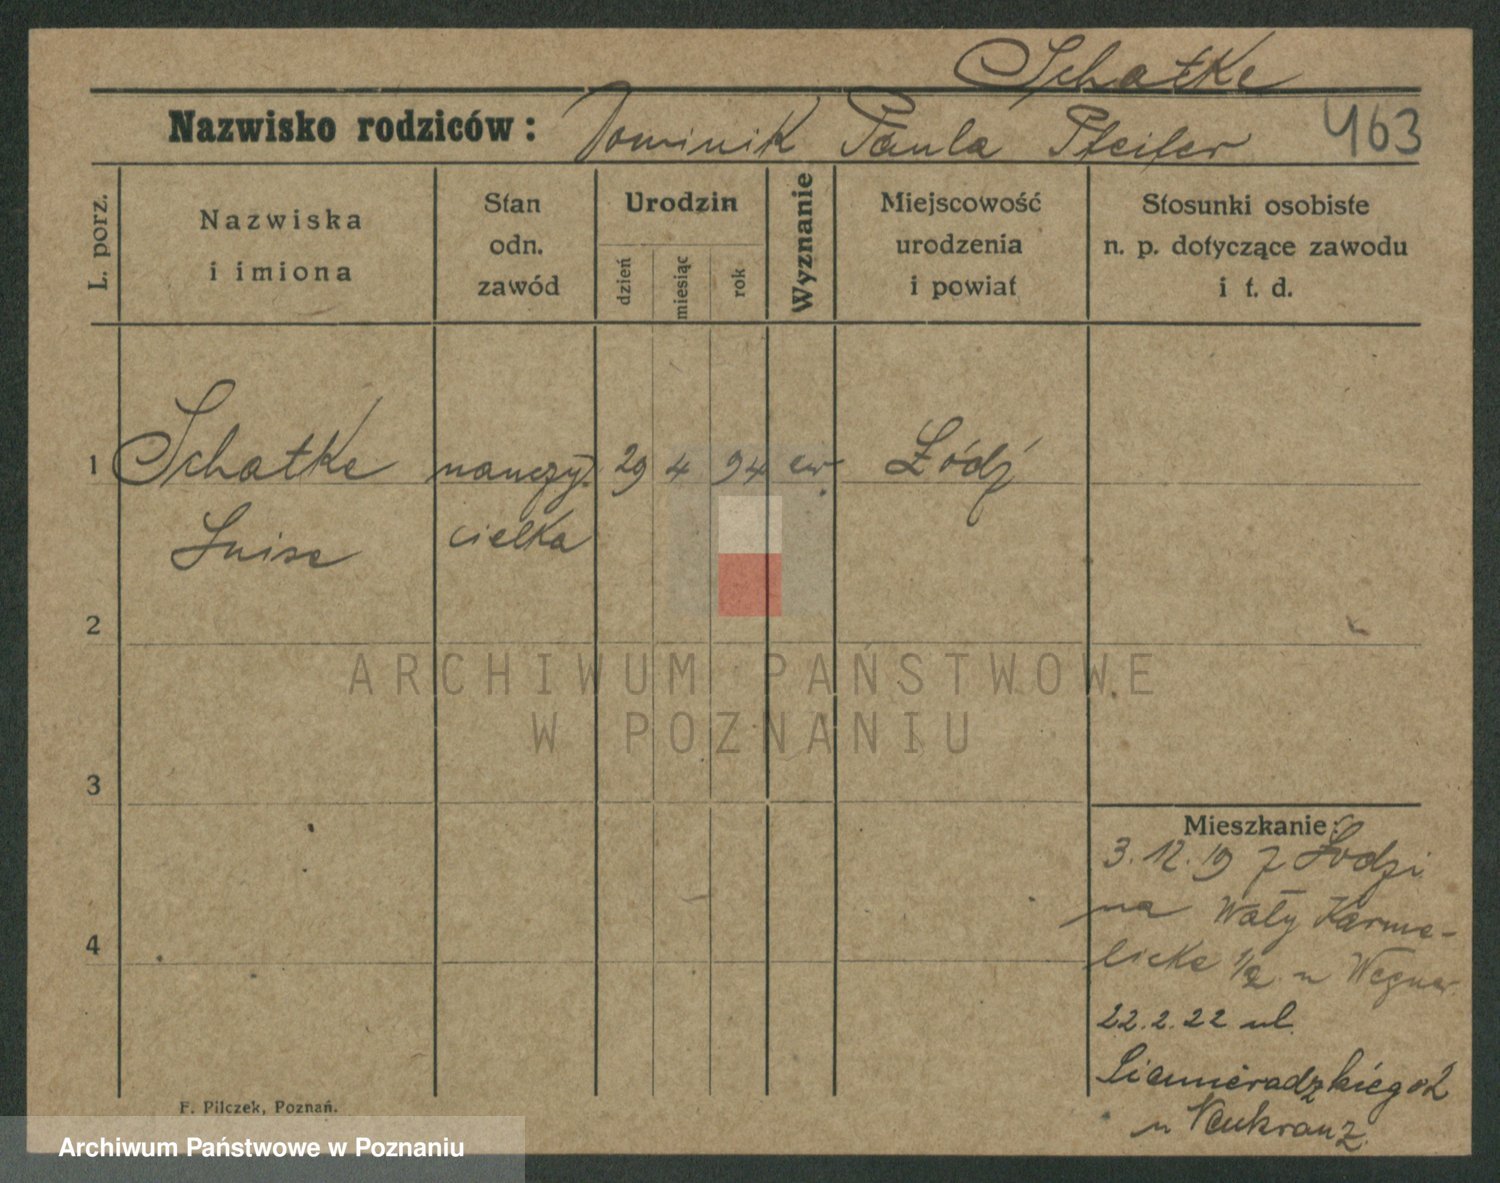 Schatke
Nazwisko rodziców: Dominik Paula Pfeifer 463
L. porz.
Nazwiska
i imiona
Stan
odn.
zawód
Urodzin
dzień
miesiąc
rok
Wyznanie
Miejscowość
urodzenia
i powiat
Stosunki osobiste
n. p. dotyczące zawodu
i t. d.
1 Schatke nauczy 29 4 94 ew. Łódź
Luise cielka
2
3
4
Mieszkanie:
3.12.19 z Łodzi
na Wały Karme-
lickie 1/2 u Wegner
22.2.22 ul.
Siemieradzkiego 2
u Neukranz
F. Pilczek, Poznań.
ARCHIWUM PAŃSTWOWE
W POZNANIU
Archiwum Państwowe w Poznaniu